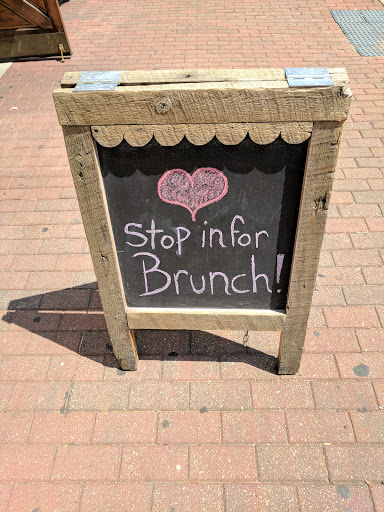 Stop in for
Brunch!